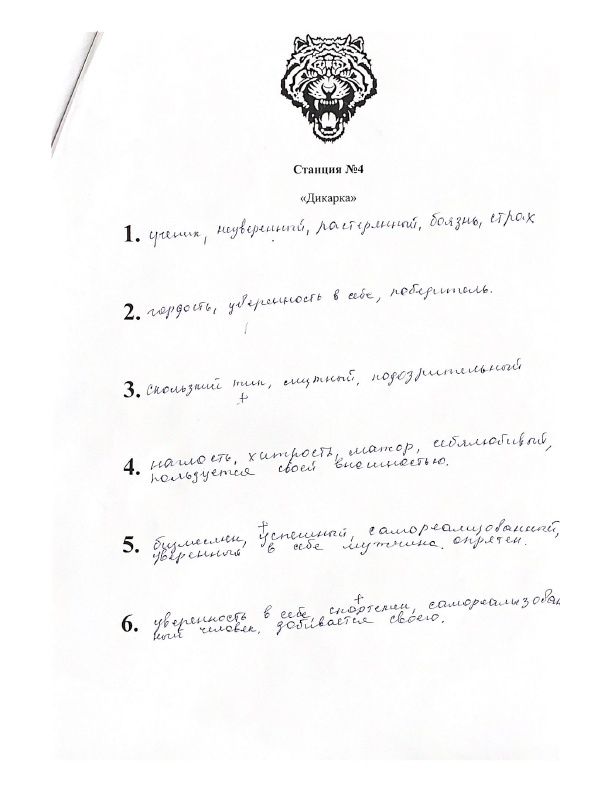 Станция №4
«Дикарка»
1. ученик, неуверенный, растерянный, боязнь, страх
2. гордость, уверенность в себе, победитель.
3. скользкий тип, смутный, подозрительный
4. наглость, хитрость, мажор, себялюбивый,
пользуется своей внешностью.
5. бизнесмен, успешный, самореализованный,
уверенный в себе мужчина, опрятен.
6. уверенность в себе, спортсмен, самореализован
ный человек, добивается своего.